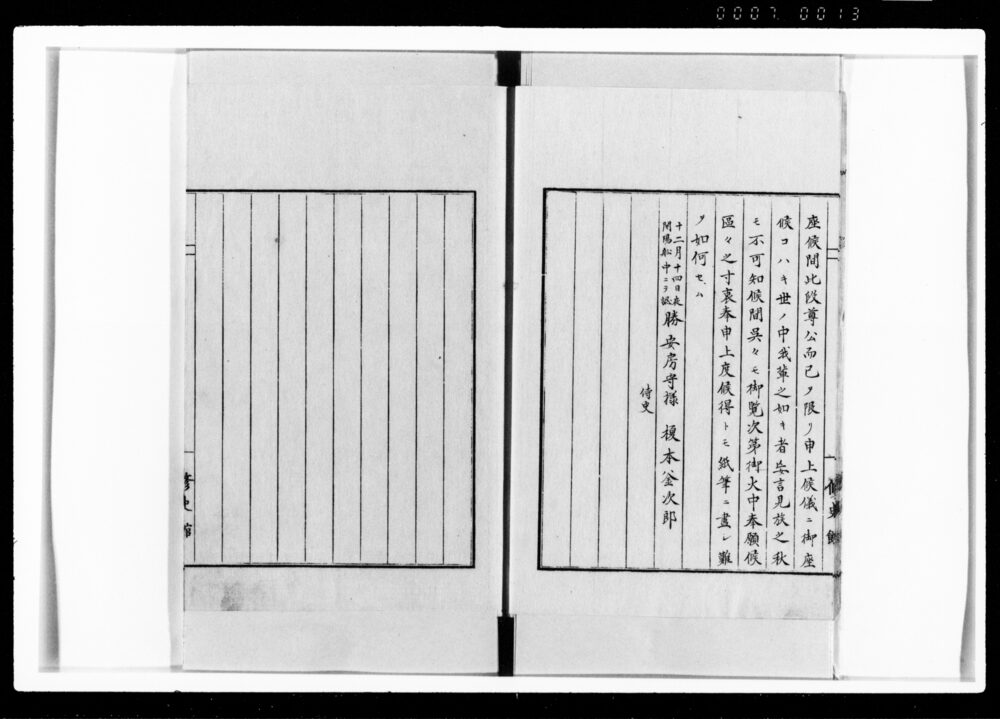 0007 0013
座候間此段尊公而已ヲ限リ申上候儀ニ御座
候コハキ世ノ中我輩之如キ者妄言見放之秋
モ不可知候間呉々モ御覧次第御火中奉願候
區々之寸衷奉申上度候得トモ紙筆ニ盡シ難
ヲ如何セハ
十二月十四日夜
開陽船中ニヲ認
勝安房守様 榎本釜次郎
侍史
修史館
修史館